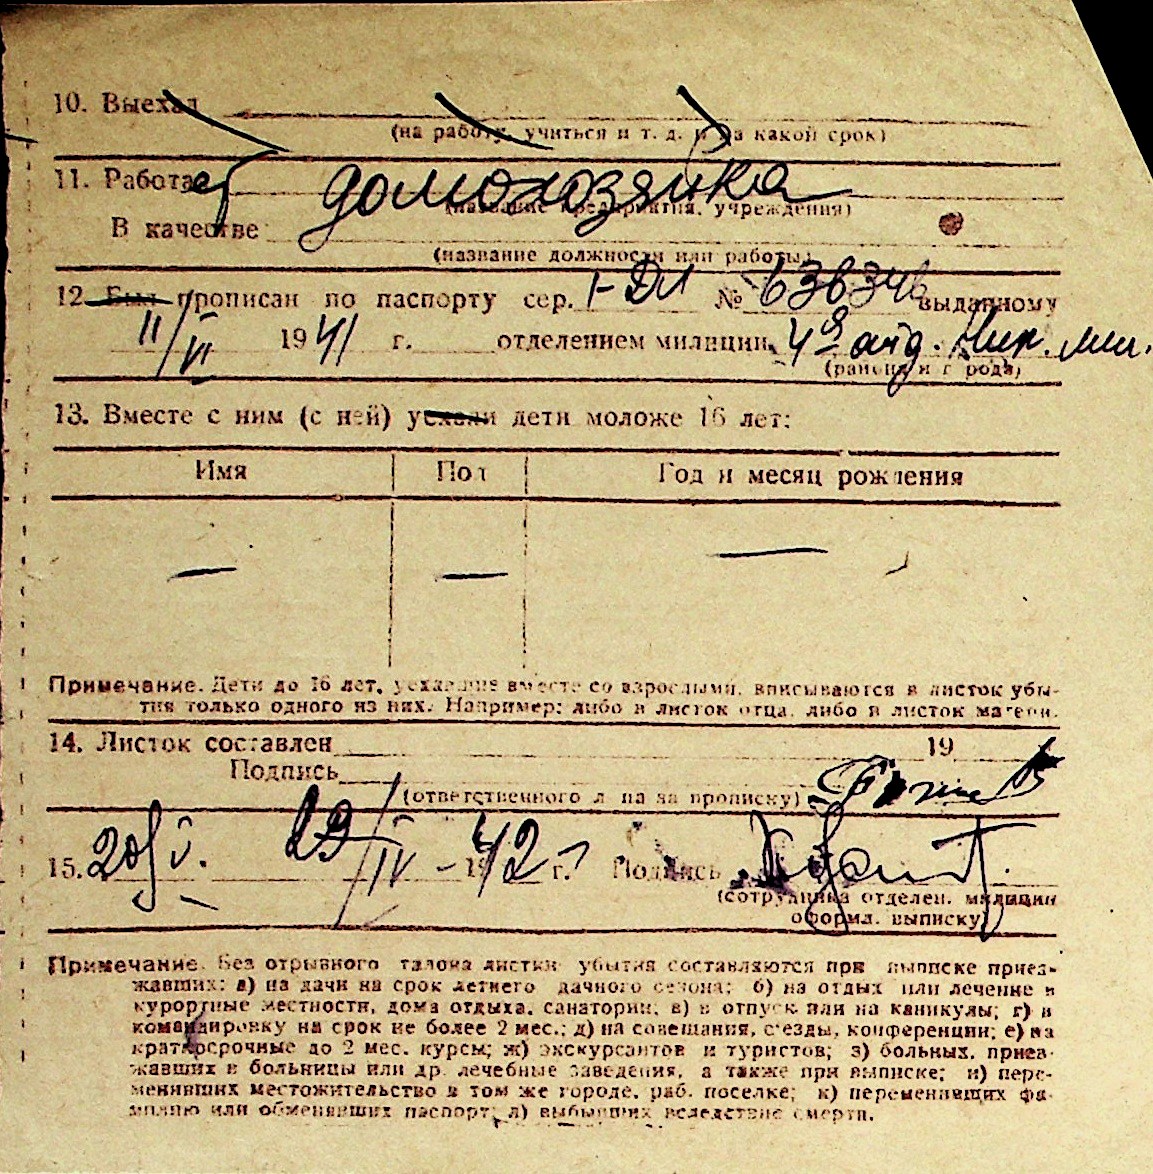 10. Выехал
(на работу, учиться и т. д. и на какой срок)
11. Работает домохозяйка
(название предприятия, учреждения)
В качестве
(название должности или работы)
12. Был прописан по паспорту сер. I-ДЛ № 636346 выданному
11/VI 1941 г. отделением милиции 4е отд. Ник. мил.
(района и города)
13. Вместе с ним (с ней) уехали дети моложе 16 лет:
Имя Пол Год и месяц рождения
— — —
Примечание. Дети до 16 лет, уехавшие вместе со взрослыми, вписываются в листок убы-
тия только одного из них. Например: либо в листок отца, либо в листок матери.
14. Листок составлен 19
Подпись
(ответственного лица за прописку)
15. 20/V. 29/IV - 1942 г. Подпись
(сотрудника отделен. милиции
оформ. выписку)
Примечание. Без отрывного талона листки убытия составляются при выписке приез-
жавших: а) на дачи на срок летнего дачного сезона; б) на отдых или лечение в
курортные местности, дома отдыха, санатории; в) в отпуск или на каникулы; г) в
командировку на срок не более 2 мес.; д) на совещания, съезды, конференции; е) на
краткосрочные до 2 мес. курсы; ж) экскурсантов и туристов; з) больных, приез-
жавших в больницы или др. лечебные заведения, а также при выписке; и) пере-
менивших местожительство в том же городе, раб. поселке; к) переменивших фа-
милию или обменявших паспорт; л) выбывших вследствие смерти.